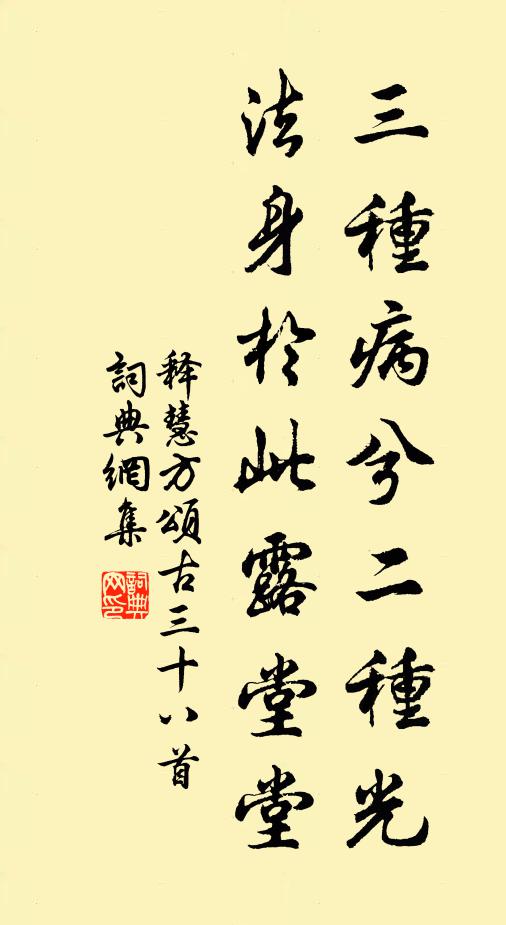 三種病兮二種光
法身於此露堂堂
释慧方頌古三十八首
詞典網集
詞典
网印